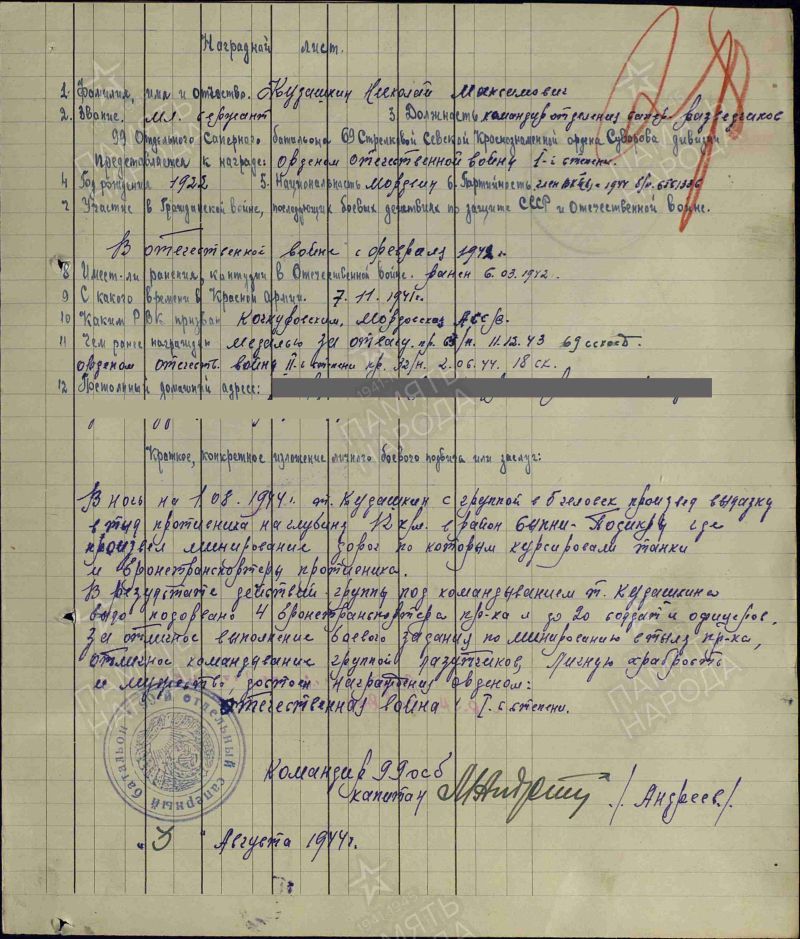 Наградной лист.
1. Фамилия, имя и отчество. Кудашкин Николай Максимович
2. Звание. мл. сержант 3. Должность командир отделения сапер. разведчиков
99 Отдельного Саперного батальона 69 Стрелковой Севской Краснознаменной ордена Суворова дивизии
Представляется к награде: орденом отечественной войны 1-й степени.
4 Год рождения 1922 5. Национальность Мордвин 6. Партийность член ВКП(б) с 1944
7 Участие в Гражданской войне, последующих боевых действиях по защите СССР и Отечественной войне.
В отечественной войне с февраля 1942 г.
8 Имеет-ли ранения, контузии в Отечественной войне. ранен 6.03.1942.
9 С какого времени в Красной Армии. 7.11.1941г.
10 Каким РВК призван Кочкуровским, Мордовской АССР.
11 Чем ранее награжден медалью за отвагу. пр. 11.12.43 69
орденом отечеств. войны II-й степени пр. 32/н. 2.06.44. 18 ск.
12 Постоянный домашний адресс:
Краткое, конкретное изложение личного боевого подвига или заслуг:
В ночь на 1.08.1944г. т. Кудашкин с группой в 6 человек произвел вылазку
в тыл противника на глубину 12 км. в район где
произвел минирование дорог по которым курсировали танки
и бронетранспортеры противника.
В результате действий группы под командыванием т. Кудашкина
было подорвано 4 бронетранспортера пр-ка и до 20 солдат и офицеров.
За отличное выполнение боевого задания по минированию в тылу пр-ка,
отличное командование группой разутчиков, личную храбрость
и мужество, достоин награждения орденом:
отечественная война I-й степени.
Командир 99 осб
капитан /Андреев./
отдельный саперный батальон
"5" Августа 1944г.
ПАМЯТЬ НАРОДА
1941-1945